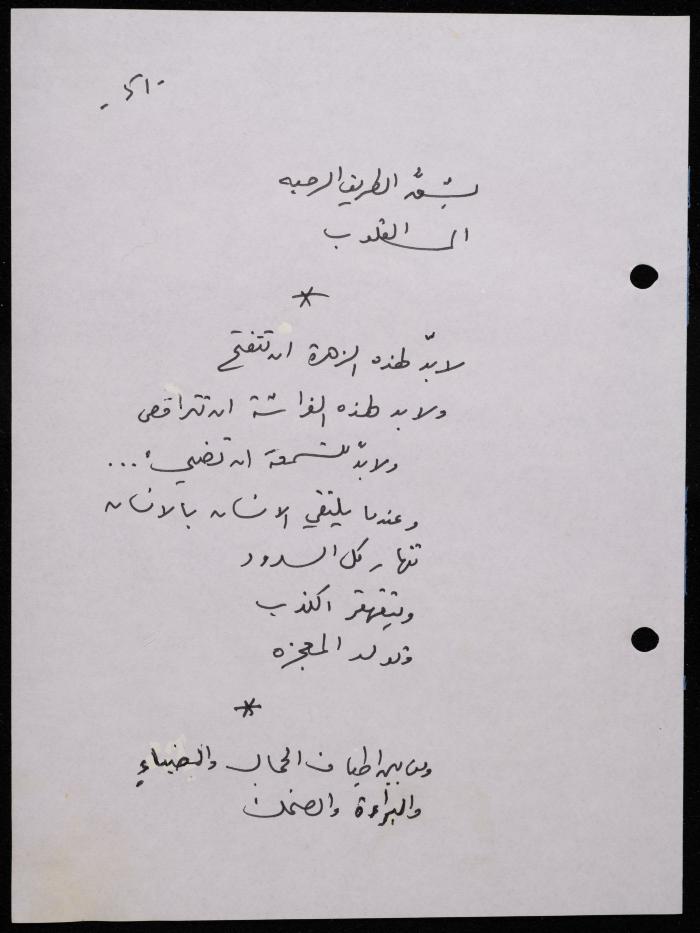 تشقُّ الطريق الرحبه
الى القلوب
*
لابدّ لهذه الزهرة ان تتفتح
ولابد لهذه الفراشة ان تتراقص
ولابدّ للشمعة ان تضيء...
وعندما يلتقي الانسان بالانسان
تنهار كل السدود
ويتقهقر الكذب
وتولد المعجزه
*
ومن بين اطياف الجمال والضياءِ
والبراءة والضحك